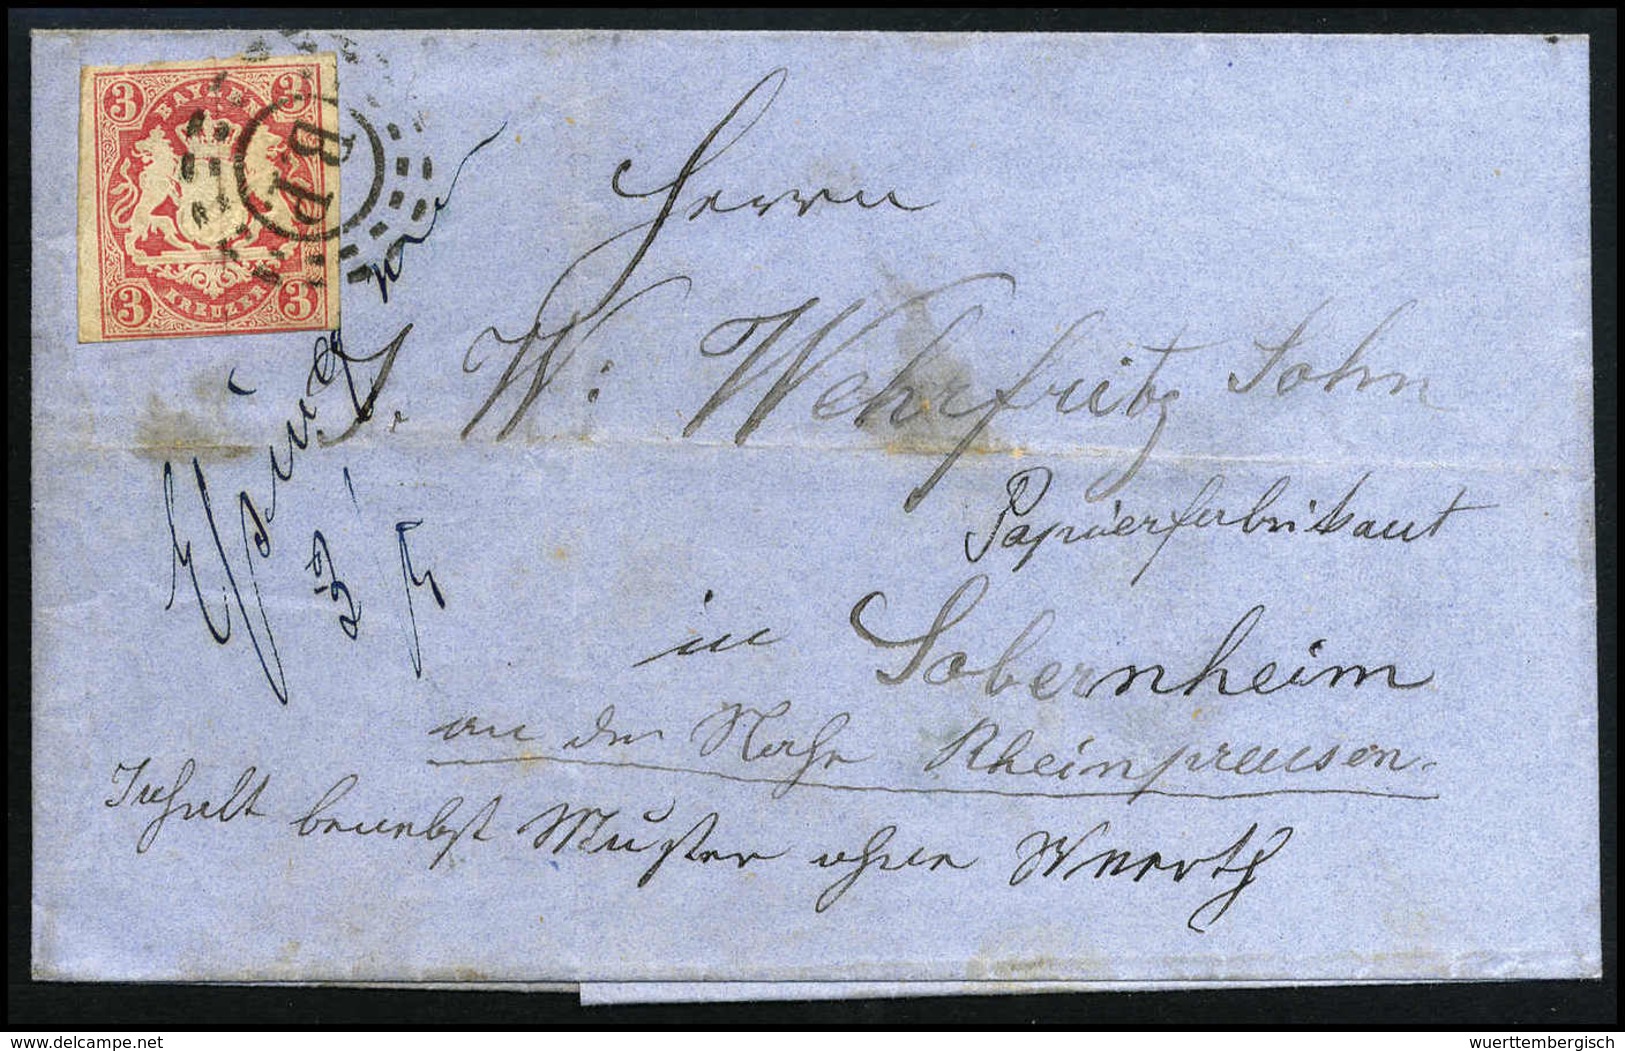 3 BAYERN 3
3 KREUZER 3
B.P.
Herrn
J. W: Wehrfritz Sohn
Papierfabrikant
in Sobernheim
an der Nahe Rheinpreusen.
Inhalt benebst Muster ohne Werth
3/5
delcampe.net
wuerttembergisch